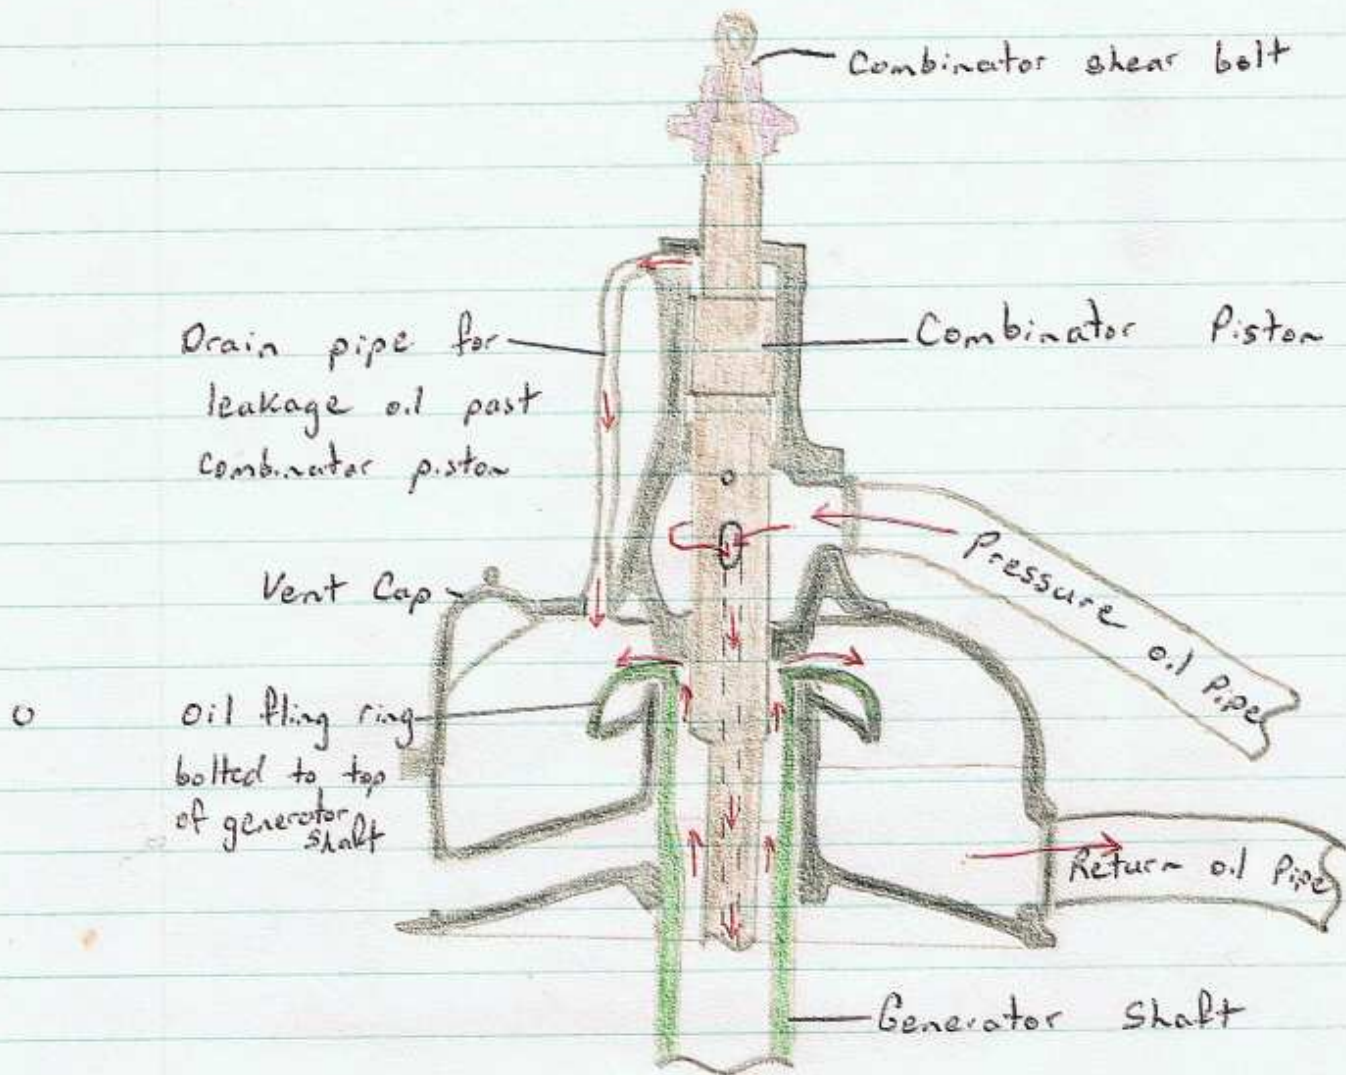 Combinator shear bolt
Drain pipe for
leakage oil past
combinator piston
Combinator Piston
Pressure oil Pipe
Vent Cap
Oil fling ring
bolted to top
of generator
shaft
Return oil Pipe
Generator Shaft